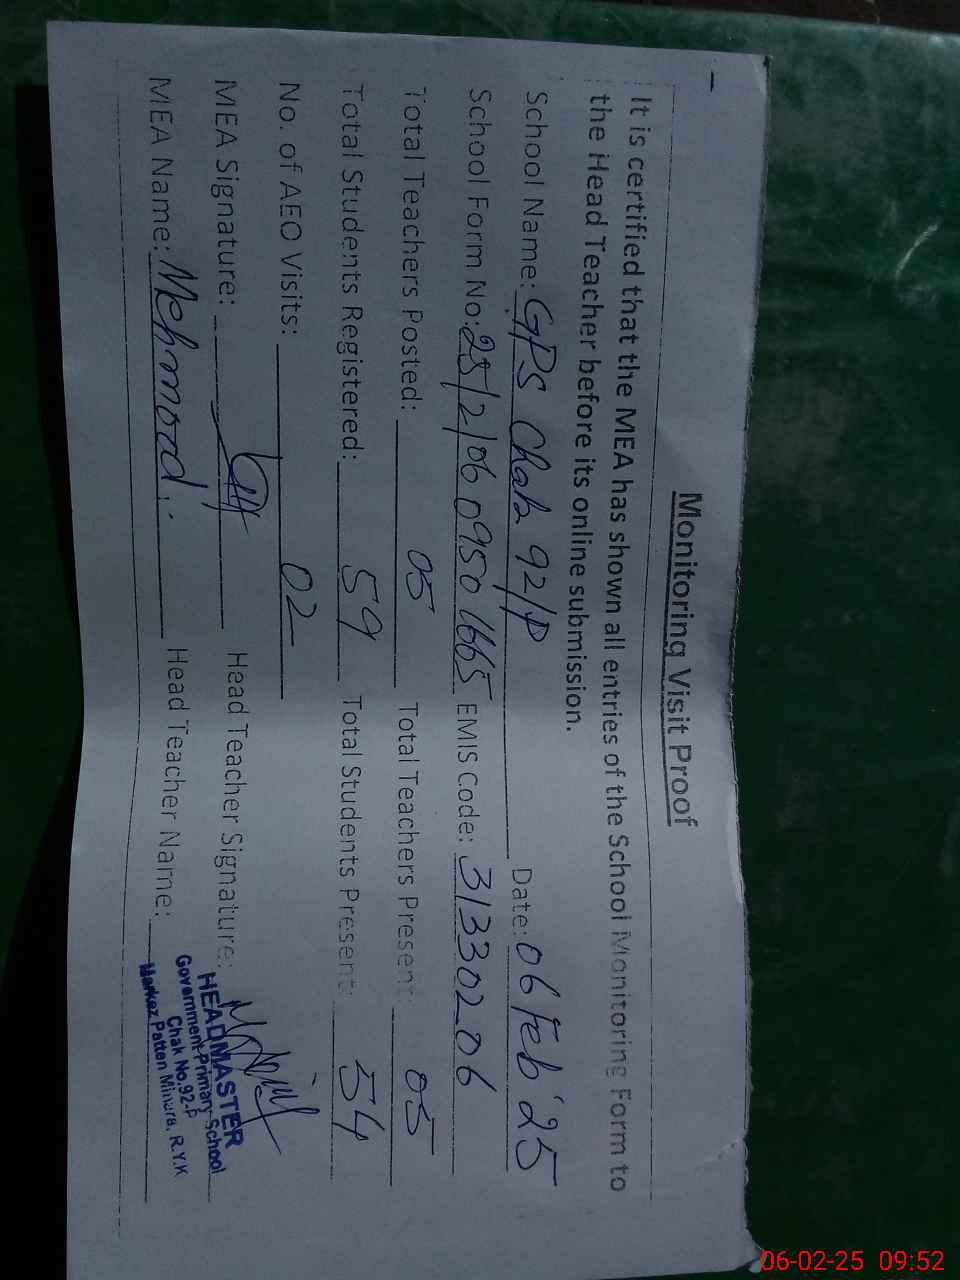 Monitoring Visit Proof
It is certified that the MEA has shown all entries of the School Monitoring Form to
the Head Teacher before its online submission.
School Name: GPS Chak 92/P Date: 06 Feb '25
School Form No: 25/2/06 0950 1665 EMIS Code: 31330206
Total Teachers Posted: 05 Total Teachers Present: 05
Total Students Registered: 59 Total Students Present: 54
No. of AEO Visits: 02
MEA Signature: Head Teacher Signature:
MEA Name: Mehmood. Head Teacher Name:
HEADMASTER
Government Primary School
Chak No. 92-P
Markez Pattan Minara, R.Y.K
06-02-25 09:52